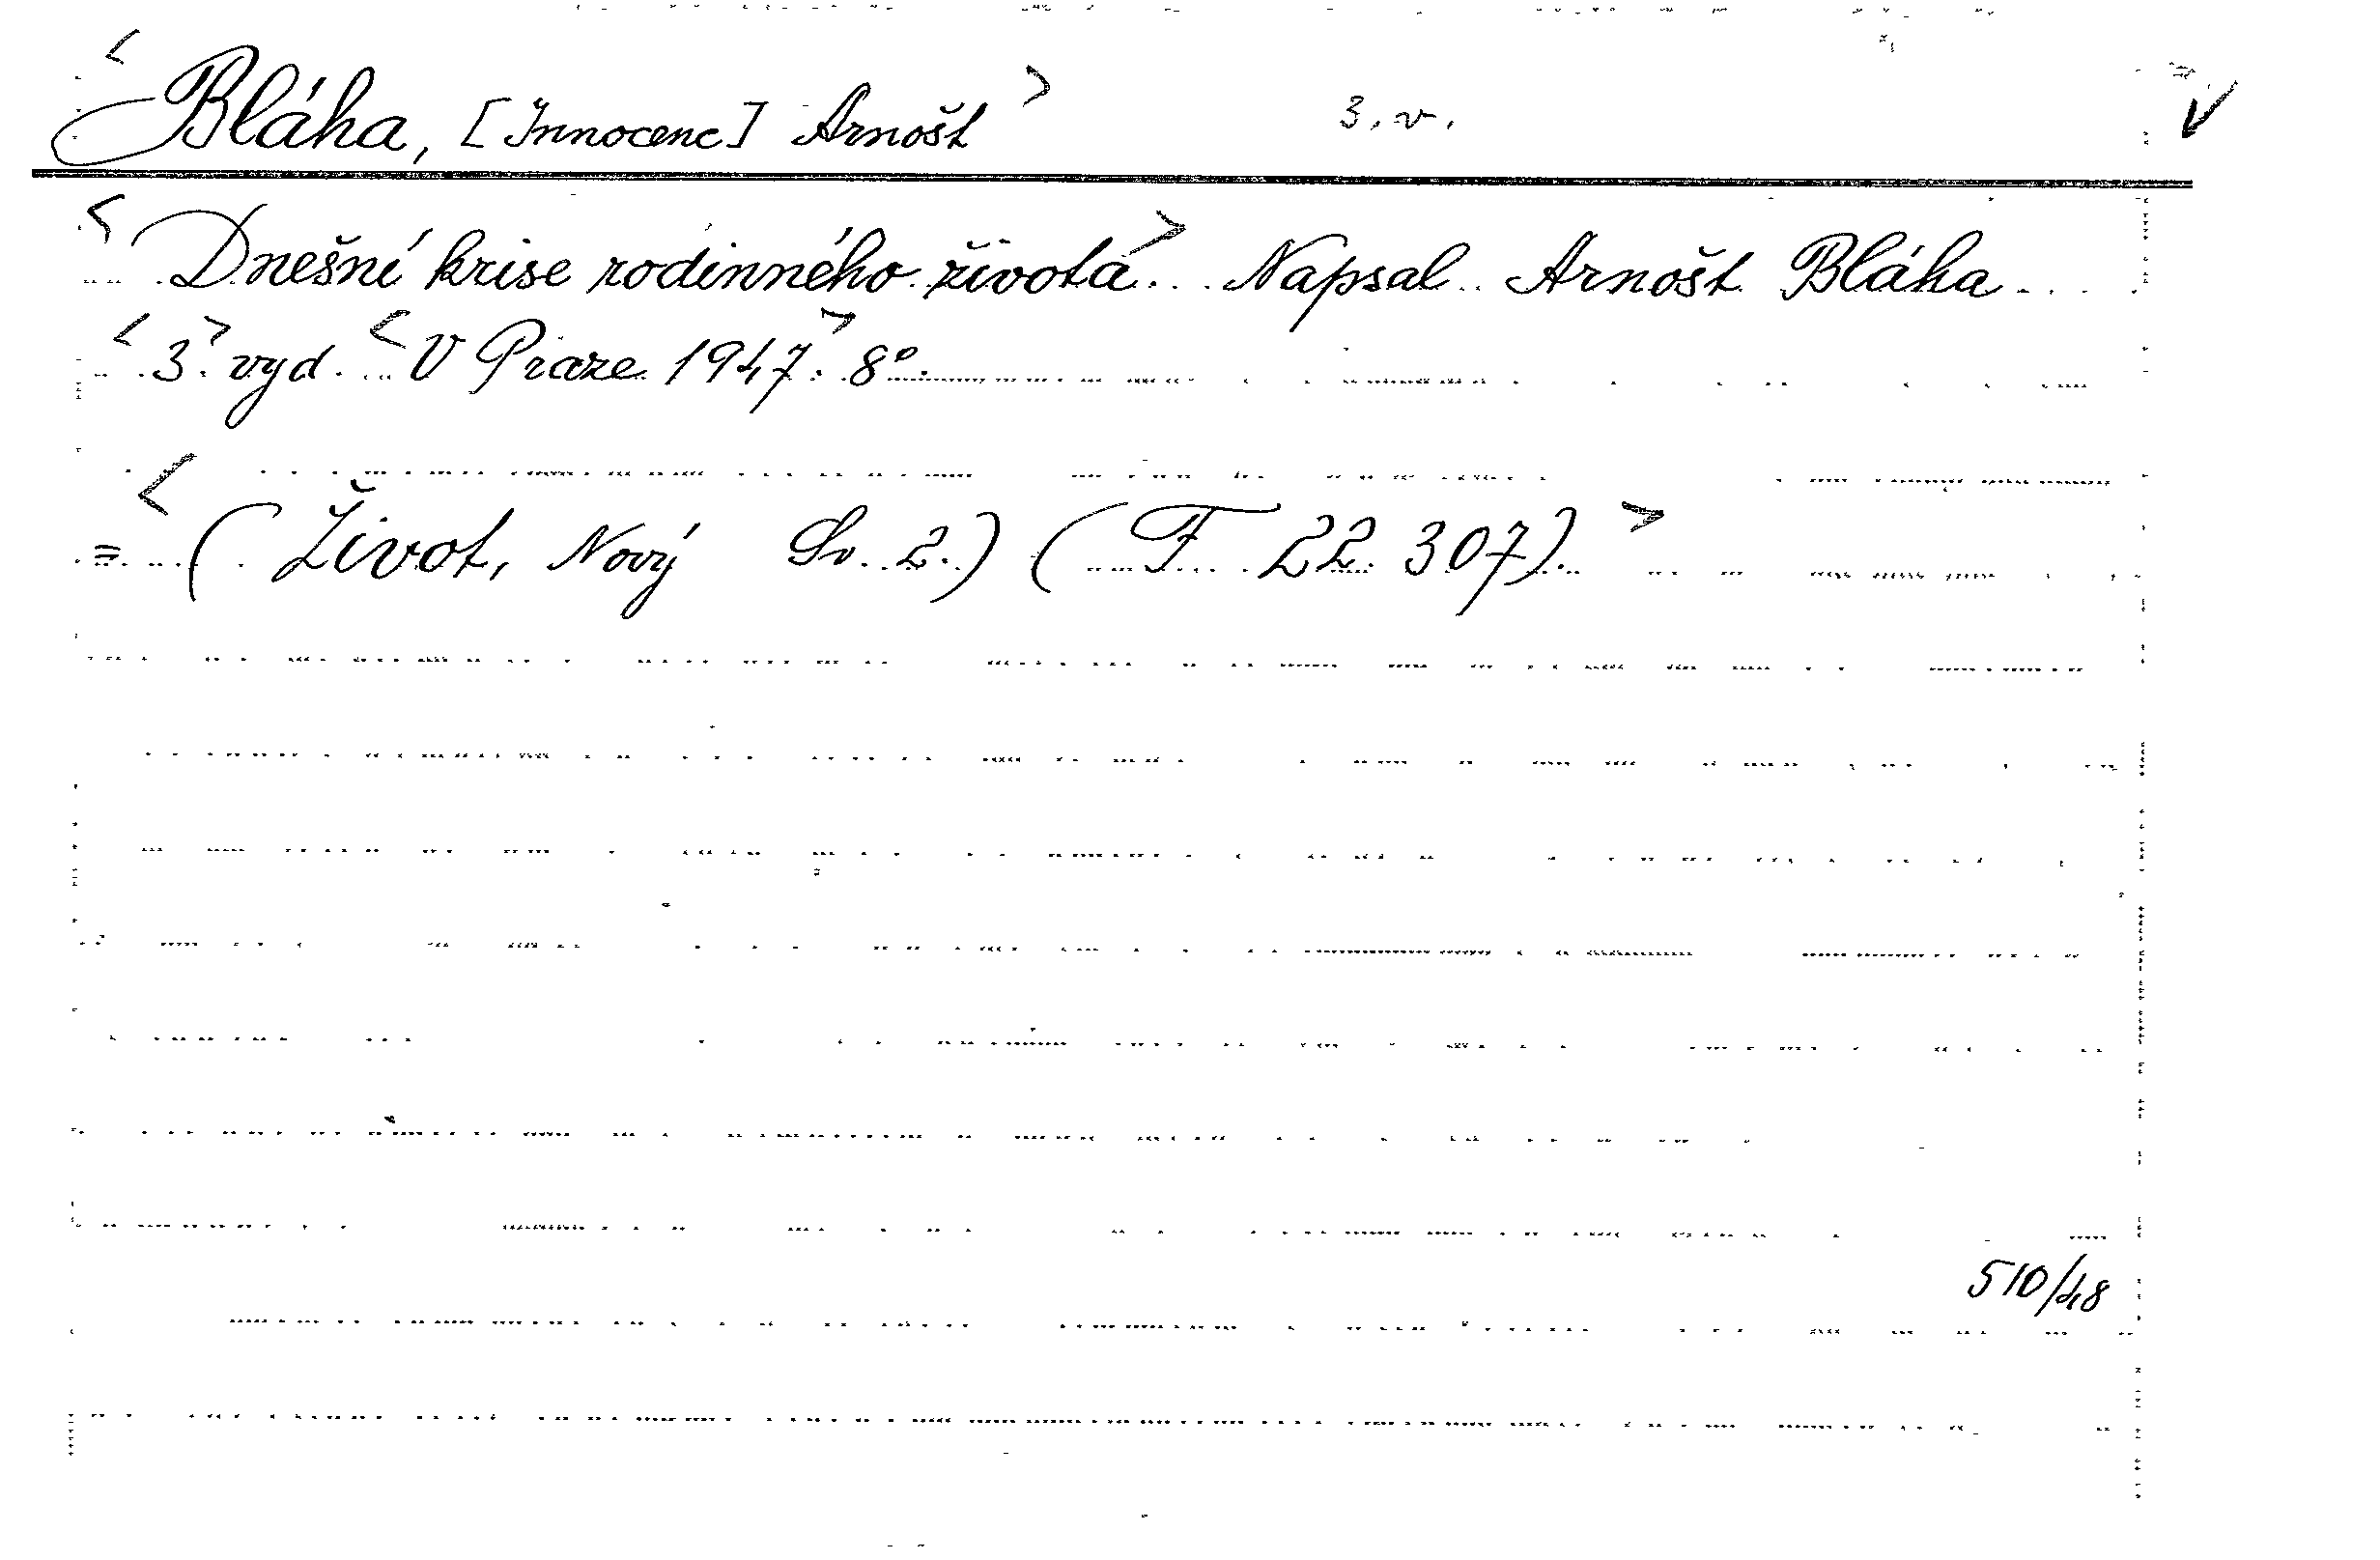 <Bláha, [Innocenc] Arnošt> 3. v. V
<Dnešní krise rodinného života> Napsal Arnošt Bláha
<3.> vyd. <V Praze 1947.> 8°.
= <(Život, Nový Sv. 2.) (F 22 307).>
510/48